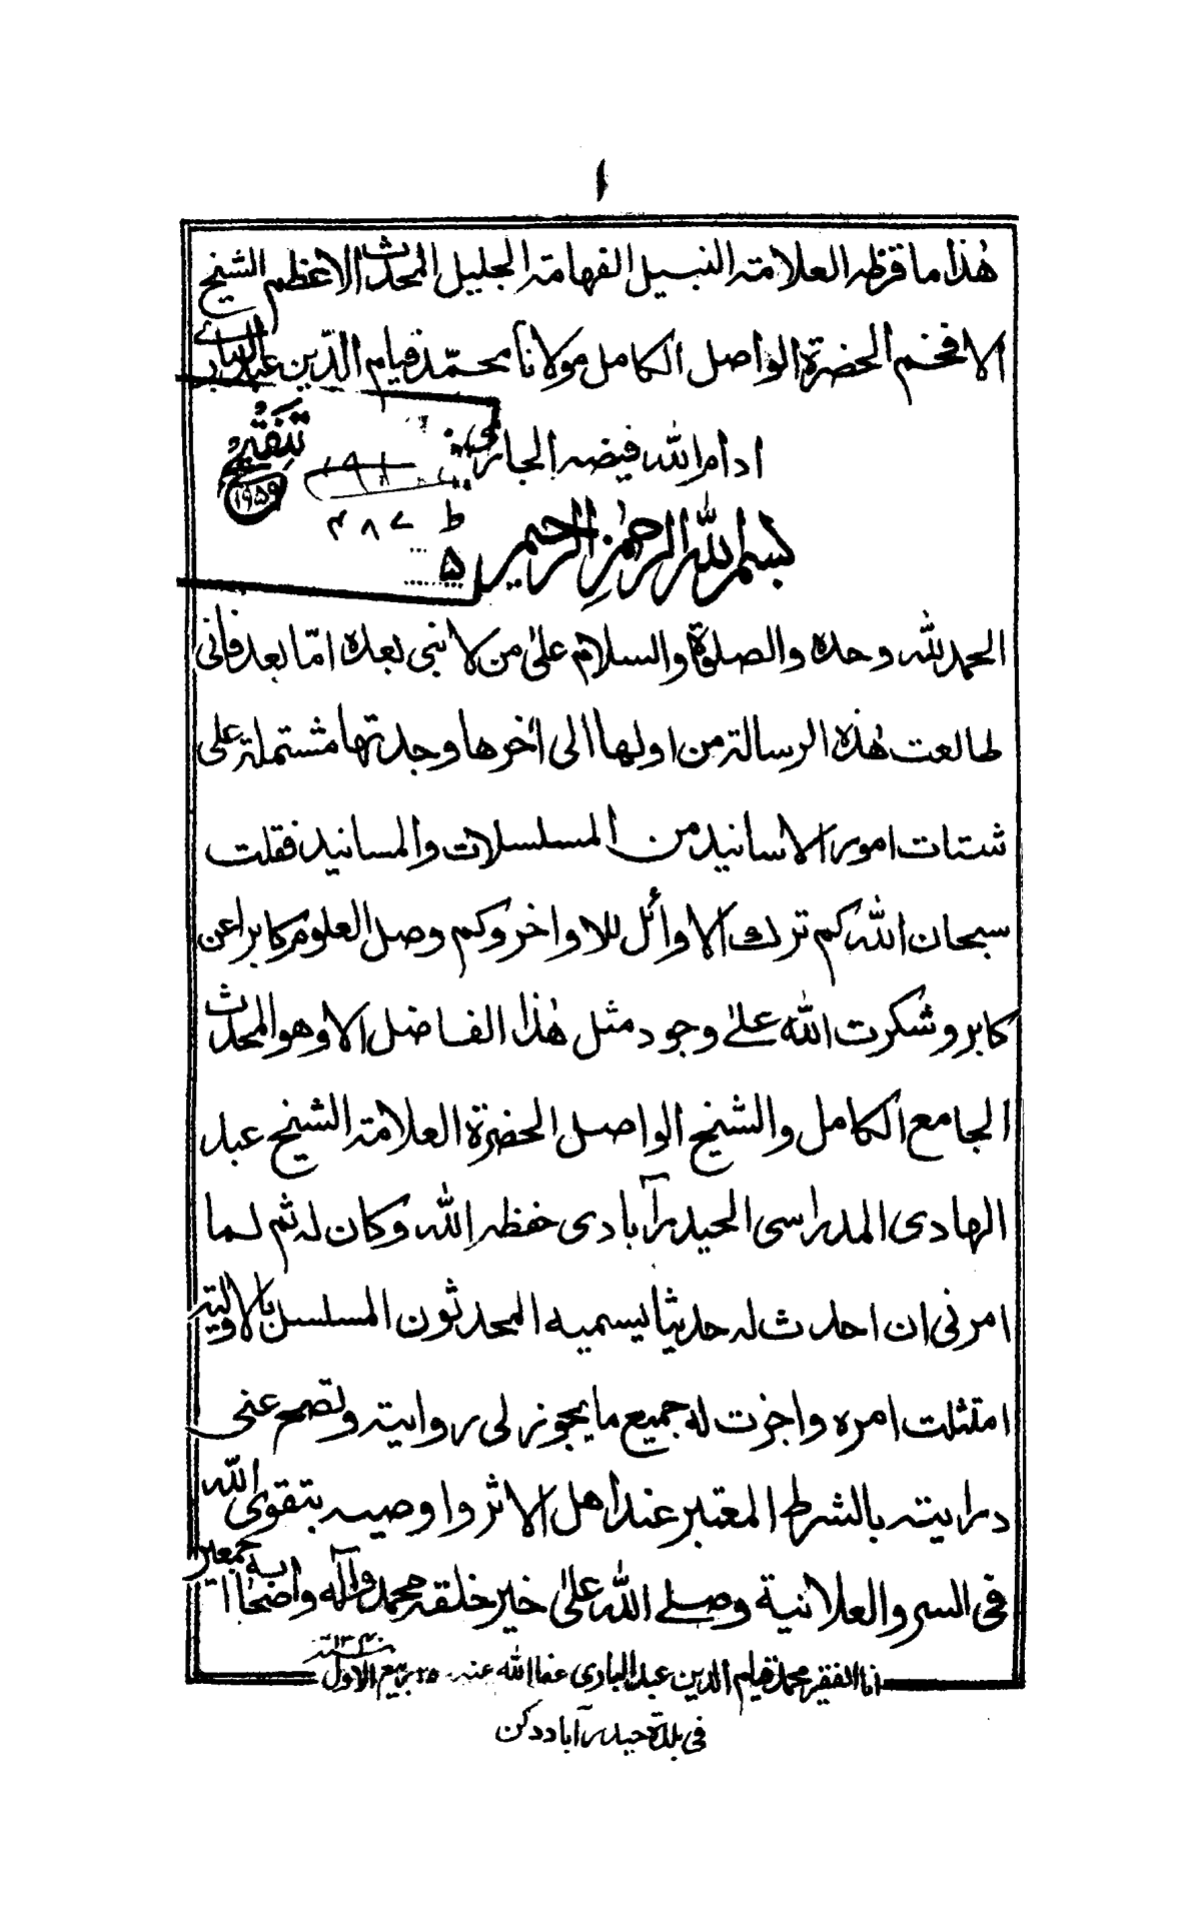 ١
هٰذا ما قرظه العلامة النبيل الفهامة الجليل المحدث الاعظم الشيخ
الافخم الحضرة الواصل الكامل مولانا محمّد قيام الدّين عبد الباري
ادام الله فيضه الجاري
تنقيح
١٩٥٩
بسم الله الرحمٰن الرحيم
۵
الحمد لله وحده والصلوٰة والسلام علىٰ من لا نبي بعده امّا بعد فاني
طالعت هٰذه الرسالة من اولها الى اٰخرها وجدتها مشتملة على
شتات امور الاسانيد من المسلسلات والمسانيد فقلت
سبحان الله كم ترك الاوائل للاواخر وكم وصل العلوم كابرا عن
كابر وشكرت الله علىٰ وجود مثل هٰذا الفاضل الا وهو المحدث
الجامع الكامل والشيخ الواصل الحضرة العلامة الشيخ عبد
الهادى المدراسى الحيدرآبادى حفظه الله وكان له ثم لما
امرنى ان احدث له حديثا يسميه المحدثون المسلسل بالاولية
امتثلت امره واجزت له جميع ما يجوز لى روايته وتصح عنى
درايته بالشرط المعتبر عند اهل الاثر واوصيه بتقوى الله
فى السر والعلانية وصلے الله علىٰ خير خلقه محمد وآله واصحابه اجمعين
انا الفقير محمد قيام الدين عبد البارى عفا الله عنه ٢٥ ربيع الاول ١٣٤٠
فى بلدة حيدرآباد دكن